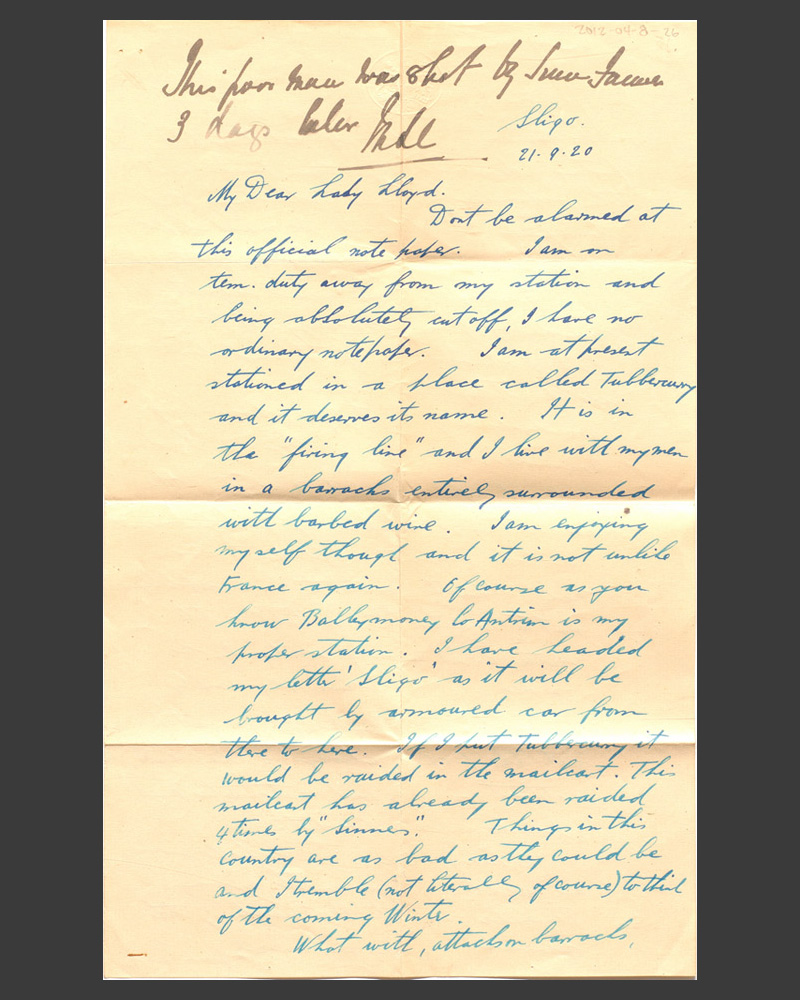 2012-04-8-26
This poor man was shot by Sinn Feiners
3 days later
Sligo.
21.9.20
My Dear Lady Lloyd.
Dont be alarmed at
this official note paper. I am on
tem. duty away from my station and
being absolutely cut off, I have no
ordinary notepaper. I am at present
stationed in a place called Tubbercurry
and it deserves its name. It is in
the "firing line" and I live with my men
in a barracks entirely surrounded
with barbed wire. I am enjoying
myself though and it is not unlike
France again. Of course as you
know Ballymoney Co Antrim is my
proper station. I have headed
my letter 'Sligo' as it will be
brought by armoured car from
there to here. If I put Tubbercurry it
would be raided in the mailcart. This
mailcart has already been raided
4 times by "Sinners". Things in this
country are as bad as they could be
and I tremble (not literally of course) to think
of the coming Winter.
What with, attacks on barracks,